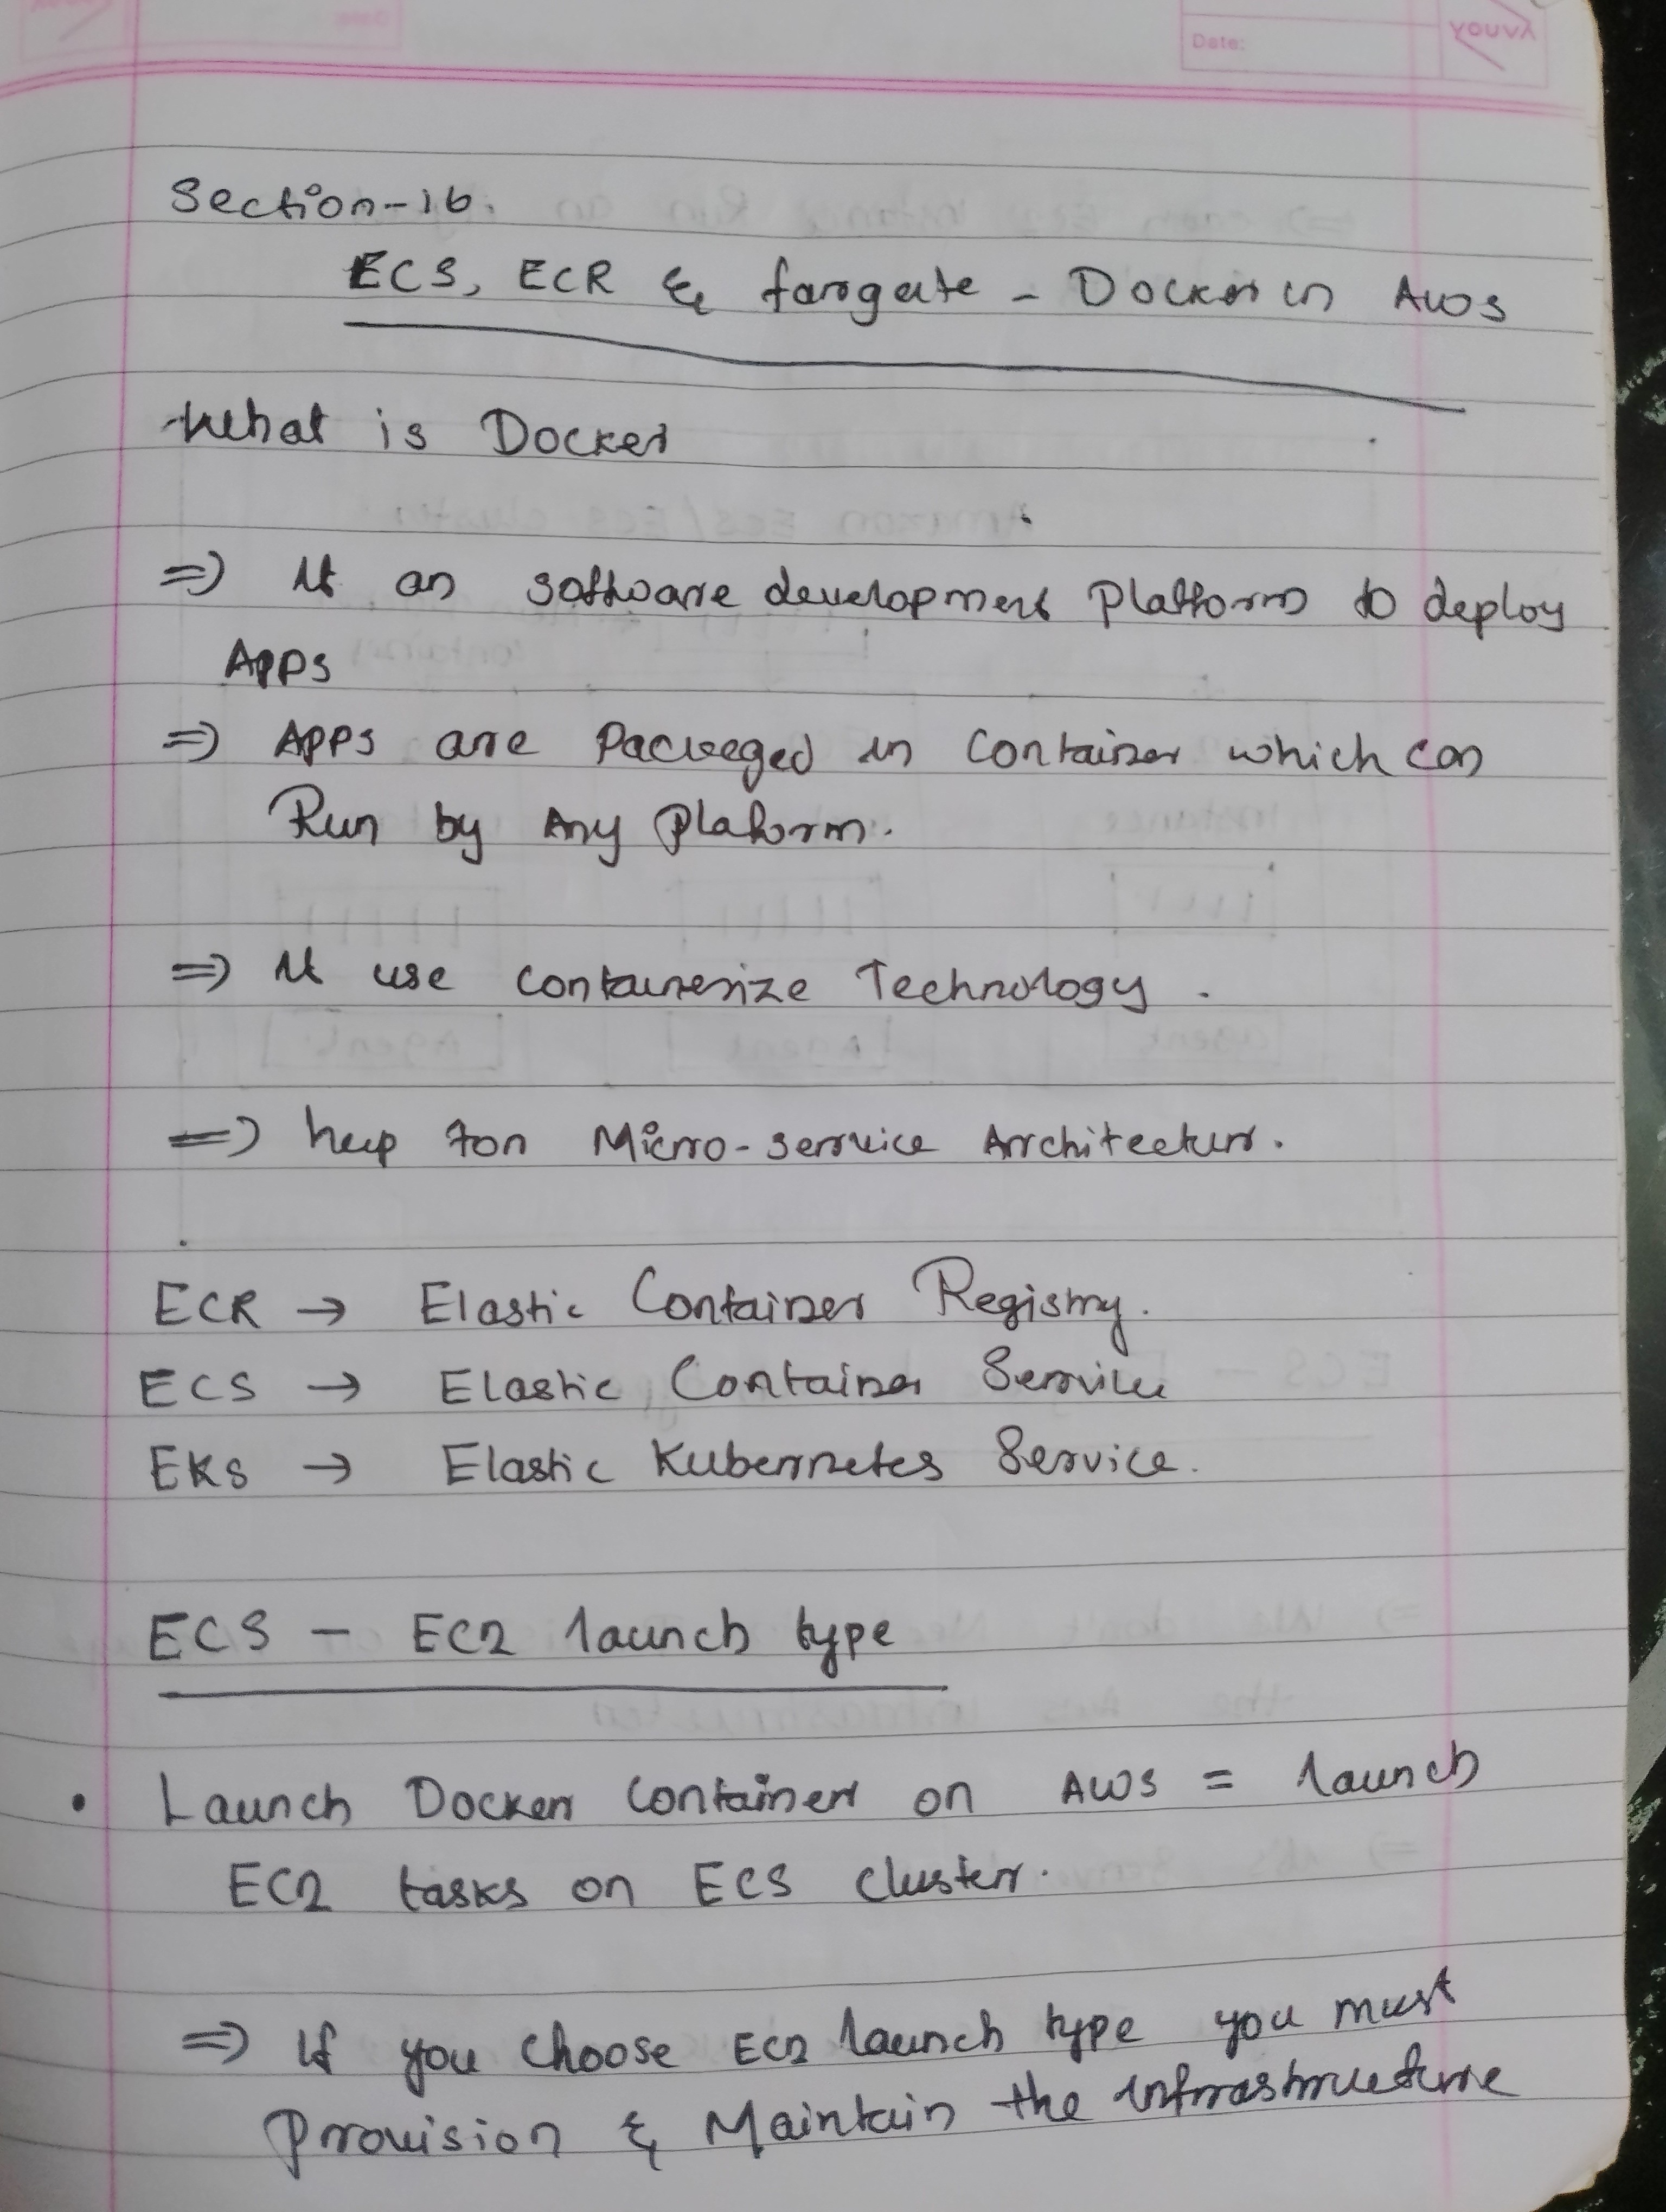 Date:
YOUVA
Section-16.
ECS, ECR & fargate - Docker in AWS
What is Docker
=> It an software development Platform to deploy
Apps
=> Apps are Packeged in Container which can
Run by Any Plaform.
=> It use containerize Technology.
=> help for Micro-service Architectur.
ECR → Elastic Container Registry.
ECS → Elastic Container Service
EKS → Elastic Kubernetes Service.
ECS - EC2 launch type
• Launch Docker Container on AWS = launch
EC2 tasks on ECS cluster.
=> If you choose EC2 launch type you must
Provision & Maintain the infrastructure